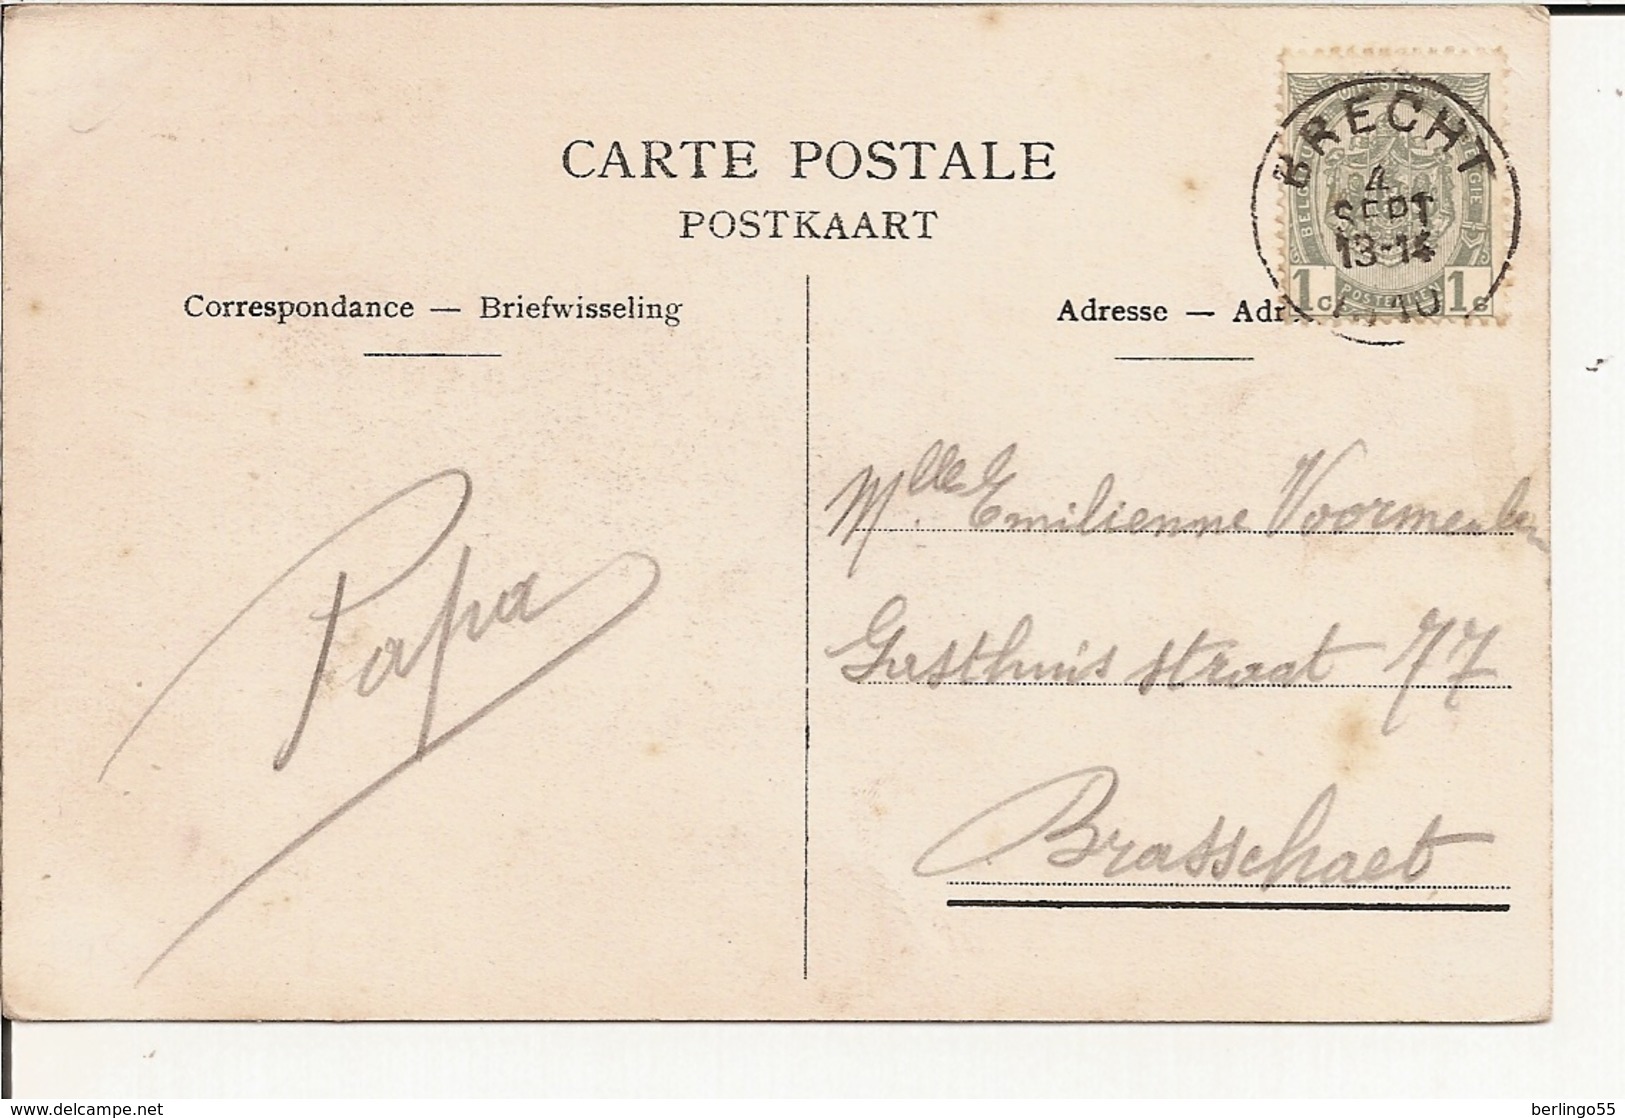 CARTE POSTALE
POSTKAART
Correspondance — Briefwisseling
Adresse — Adr
BRECHT
4
SEPT
13-14
BELGIE
1c POSTERIJEN 1c
Papa
Mlle Emilienne Voormeulen
Gasthuis straat 77
Brasschaet
delcampe.net
berlingo55